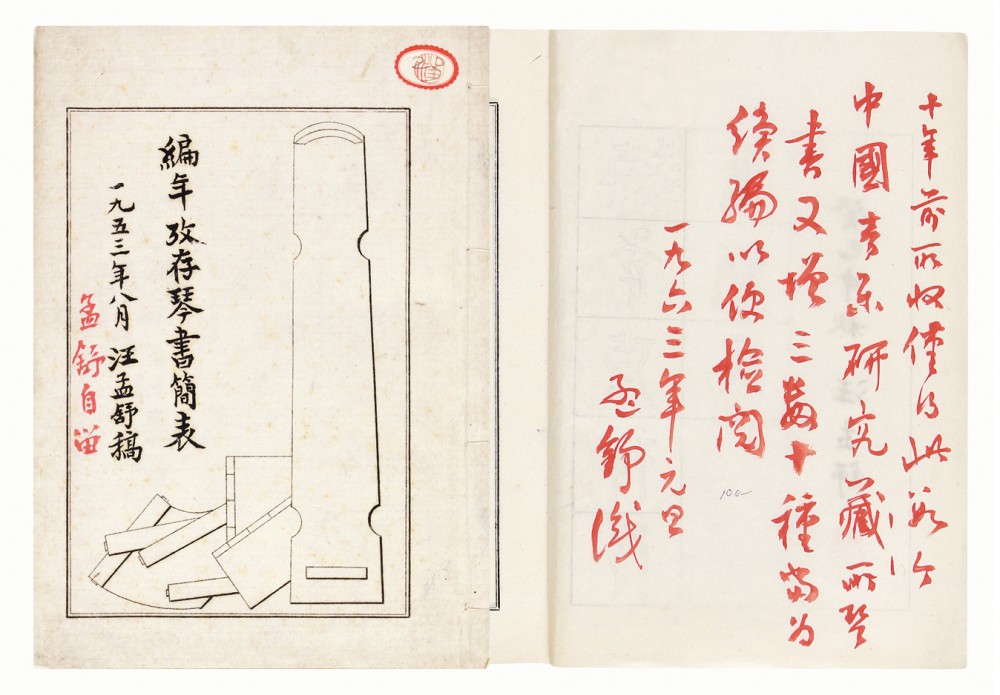 編年攷存琴書簡表
一九五三年八月 汪孟舒稿
孟舒自留
十年前所收僅得此數今
中國音乐研究藏所琴
書又增三數十種當為
續編以便檢閱
一九六三年元旦
孟舒識